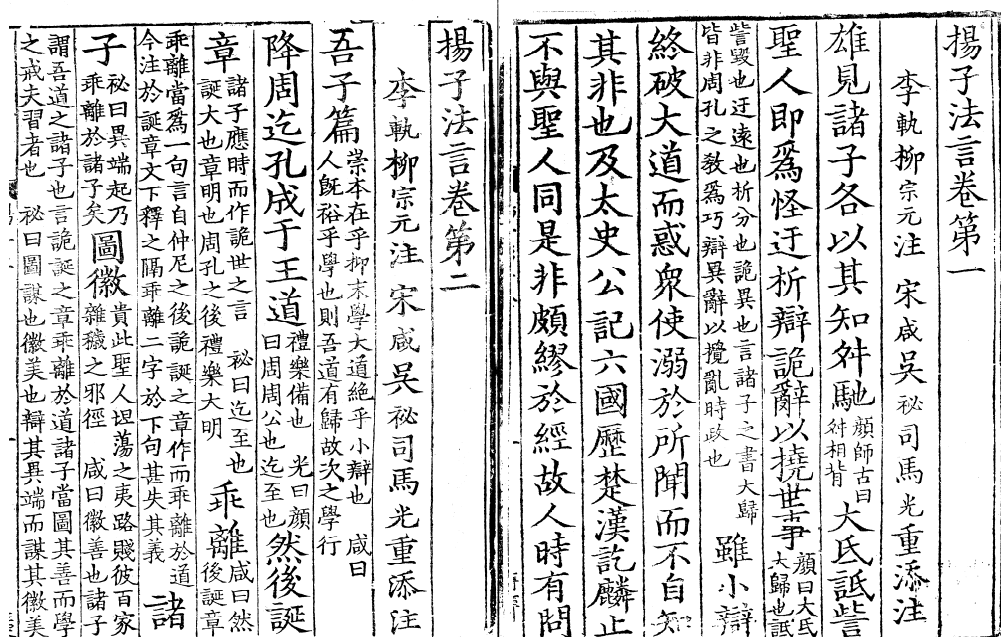 揚子法言卷第一
李軌柳宗元注 宋咸吳祕司馬光重添注
雄見諸子各以其知舛馳顏師古曰舛相背大氐詆訾
聖人即爲怪迂析辯詭辭以撓世事顏曰大氐大歸也詆
訾毀也迂遠也析分也詭異也言諸子之書大歸皆非周孔之教爲巧辯異辭以攪亂時政也雖小辯
終破大道而惑眾使溺於所聞而不自知
其非也及太史公記六國歷楚漢訖麟止
不與聖人同是非頗繆於經故人時有問
揚子法言卷第二
李軌柳宗元注 宋咸吳祕司馬光重添注
吾子篇崇本在乎抑末學大道絶乎小辯也 咸曰人旣裕乎學也則吾道有歸故次之學行
降周迄孔成于王道禮樂備也 光曰顏曰周周公也迄至也然後誕
章諸子應時而作詭世之言 祕曰迄至也誕大也章明也周孔之後禮樂大明乖離咸曰然後誕章
乖離當爲一句言自仲尼之後詭誕之章作而乖離於道今注於誕章文下釋之隔乖離二字於下句甚失其義諸
子祕曰異端起乃乖離於諸子矣圖徽貴此聖人坦蕩之夷路賤彼百家雜穢之邪徑 咸曰徽善也諸子
謂吾道之諸子也言詭誕之章乖離於道諸子當圖其善而學之戒夫習者也 祕曰圖謀也徽美也辯其異端而謀其徽美